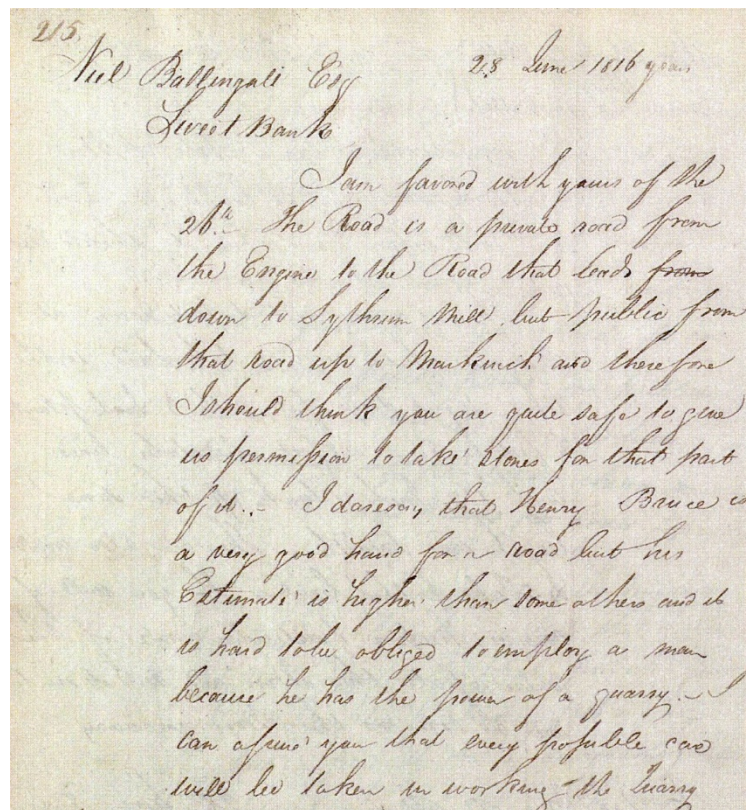 215.
28 June 1816 years
Niel Ballingall Esq
Sweet Bank
I am favored with yours of the
26th.- The Road is a private road from
the Engine to the Road that leads from
down to Sythrum Mill, but public from
that road up to Markinch and therefore
I should think you are quite safe to give
us permission to take stones for that part
of it.- I daresay that Henry Bruce is
a very good hand for a road but his
Estimate is higher than some others and it
is hard to be obliged to employ a man
because he has the power of a quarry.- I
can assure you that every possible care
will be taken in working the Quarry